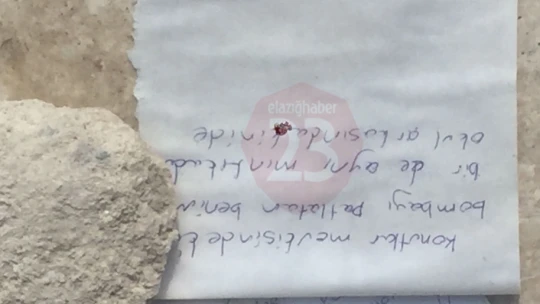 Konutlar mevkisinde
bombayı patlatan benim
bir de aynı mıntıkada
okul arkasındakinide
elazığhaber
23